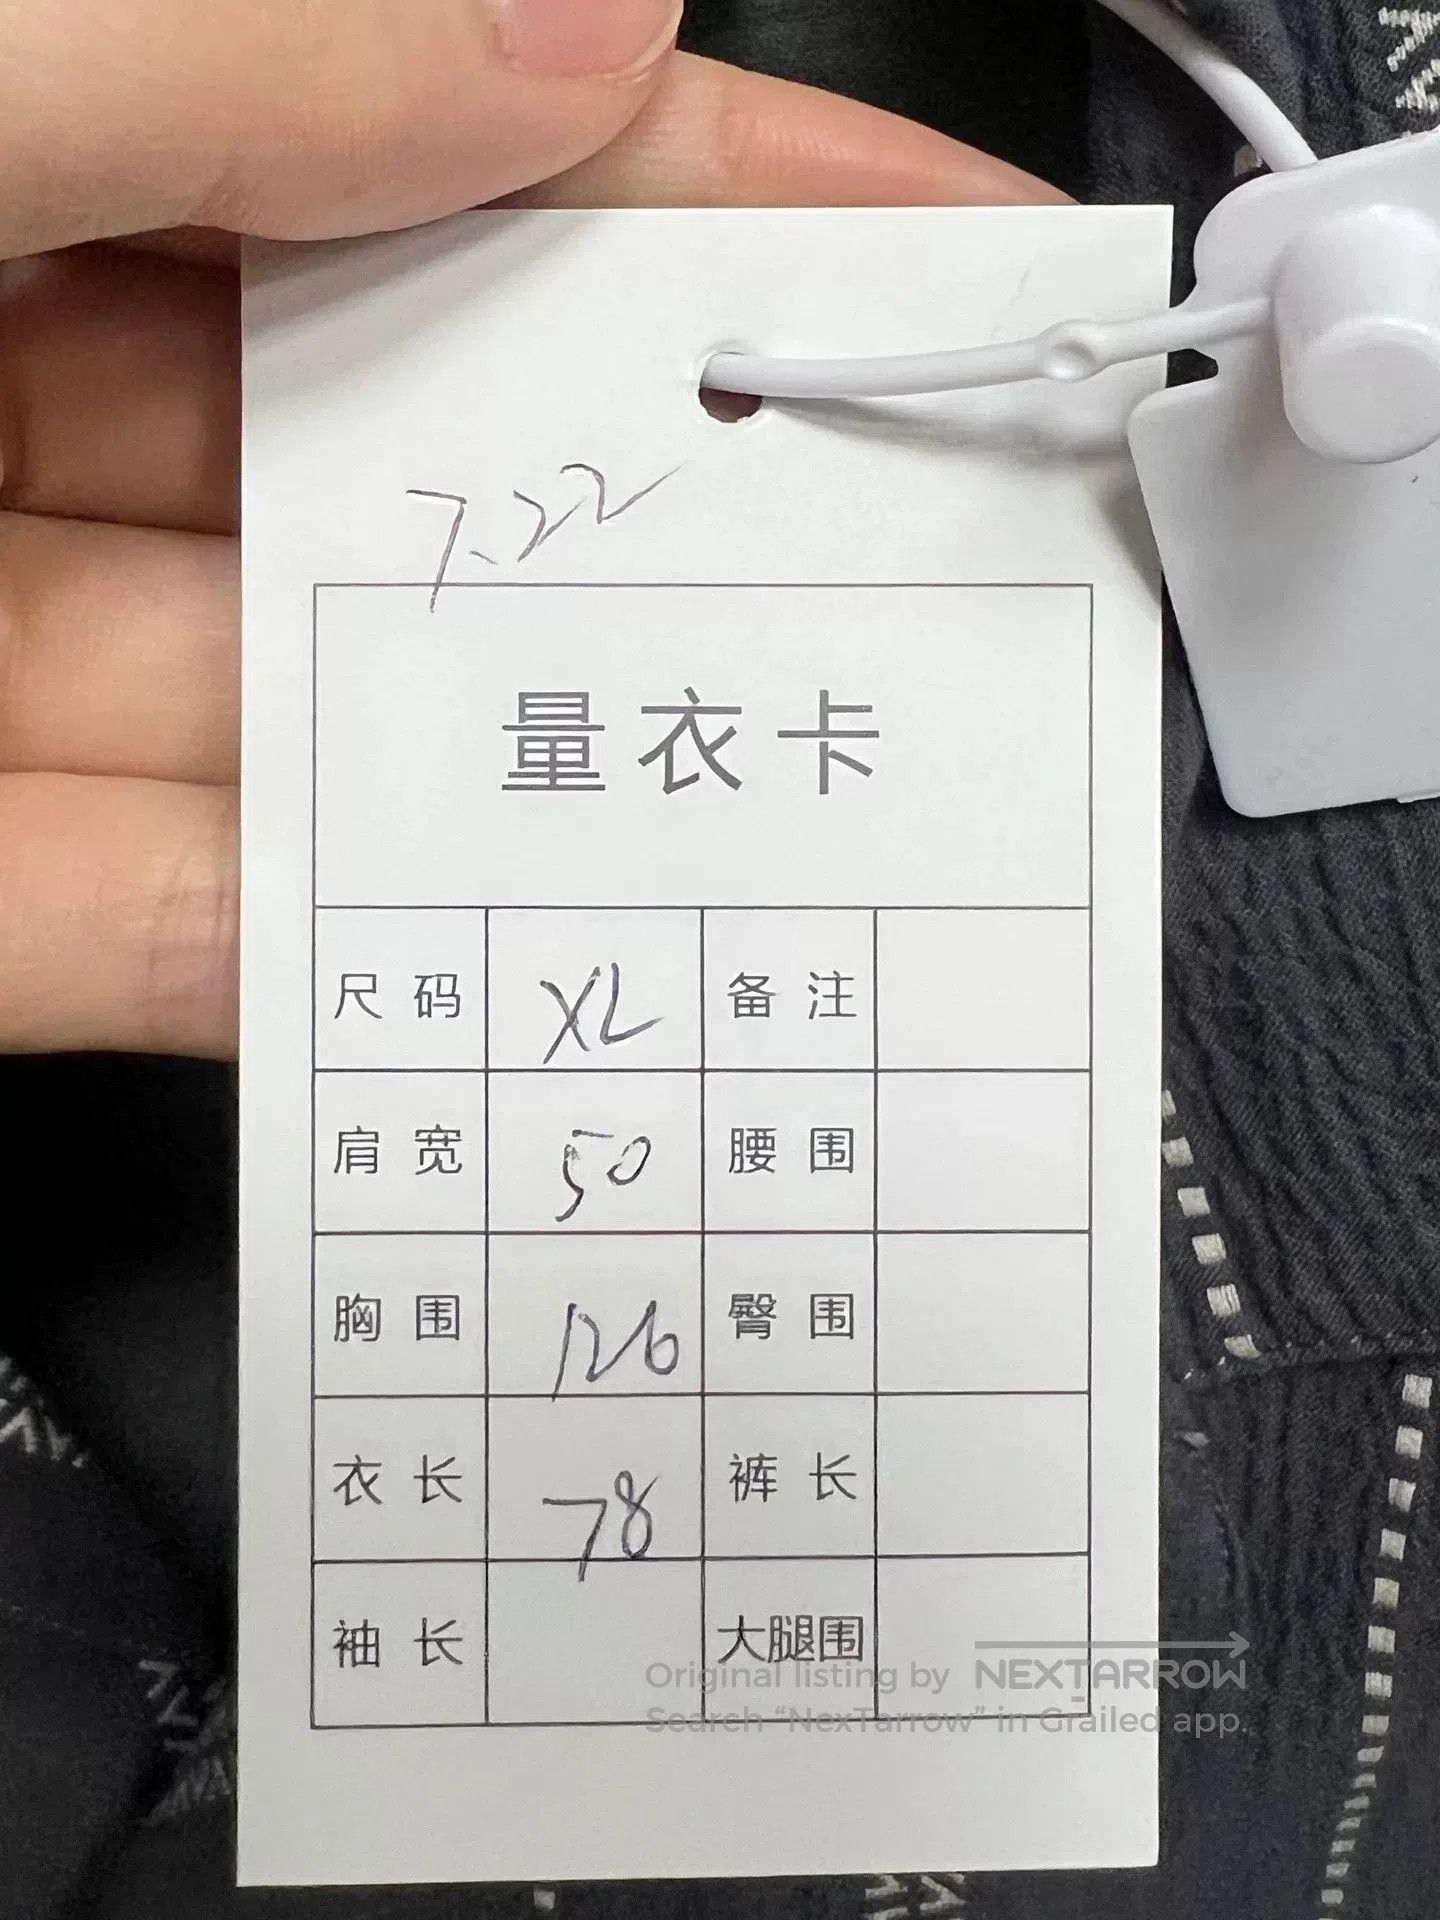 7.22
量衣卡
尺码 XL 备注
肩宽 50 腰围
胸围 126 臀围
衣长 78 裤长
袖长 大腿围
Original listing by NEXTARROW
Search “NexTarrow” in Grailed app.